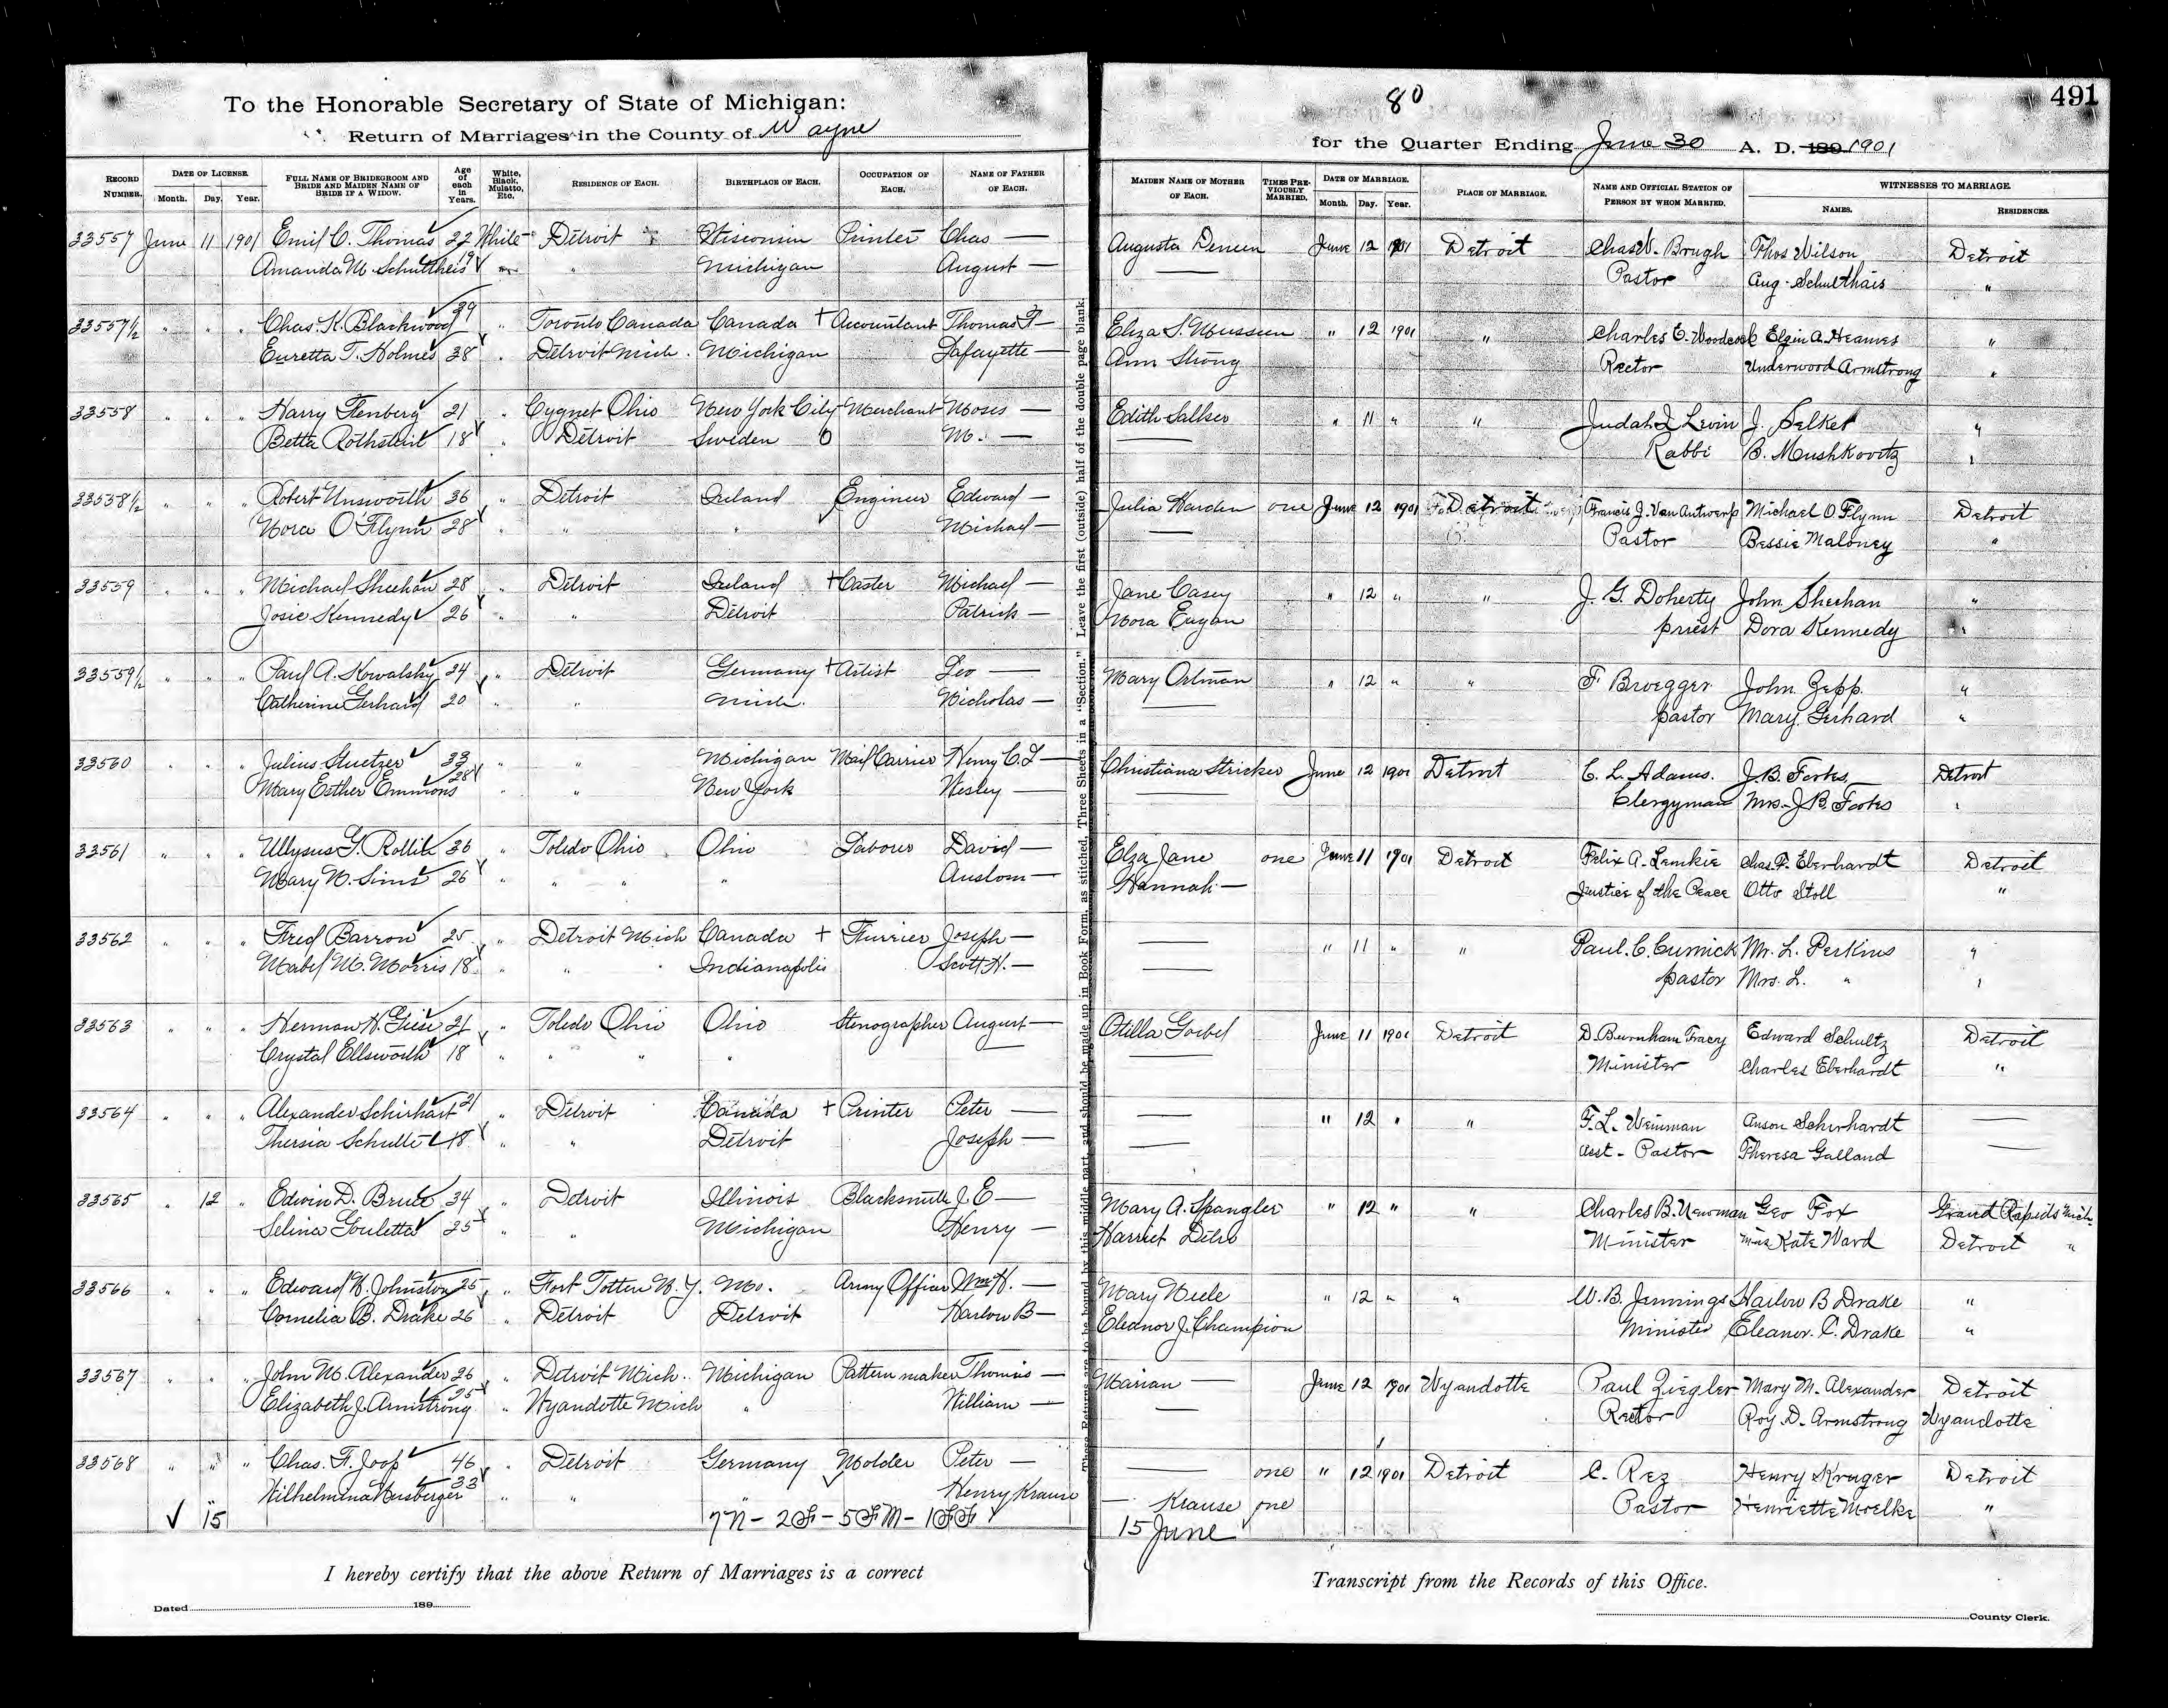 To the Honorable Secretary of State of Michigan:
Return of Marriages in the County of Wayne
80
491
for the Quarter Ending June 30 A. D. 189 1901
RECORD NUMBER. DATE OF LICENSE. Month. Day. Year. FULL NAME OF BRIDEGROOM AND BRIDE AND MAIDEN NAME OF BRIDE IF A WIDOW. Age of each in Years. White, Black, Mulatto, Etc. RESIDENCE OF EACH. BIRTHPLACE OF EACH. OCCUPATION OF EACH. NAME OF FATHER OF EACH.
MAIDEN NAME OF MOTHER OF EACH. TIMES PREVIOUSLY MARRIED. DATE OF MARRIAGE. Month. Day. Year. PLACE OF MARRIAGE. NAME AND OFFICIAL STATION OF PERSON BY WHOM MARRIED. WITNESSES TO MARRIAGE. NAMES. RESIDENCES.
33557 June 11 1901 Emil C. Thomas 22 White Detroit Wisconsin Printer Chas — Augusta June 12 1901 Detroit Chas W. Brugh Thos Wilson Detroit
Amanda M. Schultheis 19 " Michigan August — — Pastor Aug. Schulthais "
33557½ " " " Chas. K. Blackwood 39 " Toronto Canada Canada + Accountant Thomas F — Eliza S. Mussen " 12 1901 " Charles E. Woodcock Elgin A. Heames "
Euretta T. Holmes 38 " Detroit Mich. Michigan Lafayette — Ann Strong Rector Underwood Armstrong "
33558 " " " Harry 21 " Cygnet Ohio New York City Merchant Moses — Edith " 11 " " Judah L Levin J. Selket "
Betta Rothstein 18 " Detroit Sweden O M. — — Rabbi B. Mushkovitz "
33558½ " " " Robert Unsworth 36 " Detroit Ireland Engineer Edward — Julia Harden one June 12 1901 Detroit Francis J. Van Antwerp Michael O Flynn Detroit
Nora O'Flynn 28 " " " Michael — — Pastor Bessie Maloney "
33559 " " " Michael Sheehan 28 " Detroit Ireland + Caster Michael — Jane Casey " 12 " " J. G. Doherty John Sheehan "
Josie Kennedy 26 " " Detroit Patrick — Nora Eagan priest Dora Kennedy "
33559½ " " " Paul A. Kowalsky 24 " Detroit Germany + Artist Leo — Mary Ortman " 12 " " F Broegger John Zepp. "
Catherine Gerhard 20 " " Mich. Nicholas — — pastor Mary Gerhard "
33560 " " " Julius Stuetzer 33 " " Michigan Mail Carrier Henry C. F — Christiana Stricker June 12 1901 Detroit C. L. Adams. J. B. Detroit
Mary Esther Emmons 28 " " New York Wesley — — Clergyman Mrs. J. B. "
33561 " " " Ullysus G. 36 " Toledo Ohio Ohio Labour David — Elza Jane one June 11 1901 Detroit Felix A. Lemkie Chas. F. Eberhardt Detroit
Mary N. Sims 26 " " " " Anslom — Hannah — Justice of the Peace Otto Stoll "
33562 " " " Fred Barron 25 " Detroit Mich Canada + Furrier Joseph — — " 11 " " Paul. C. Curnick Mr. L. Perkins "
Mabel M. Morris 18 " " " Indianapolis Scott H. — — pastor Mrs. L. " "
33563 " " " Herman H. Giese 21 " Toledo Ohio Ohio Stenographer August — Otilla Goebel June 11 1901 Detroit D. Burnham Tracy Edward Schultz Detroit
Crystal Ellsworth 18 " " " " — — Minister Charles Eberhardt "
33564 " " " Alexander Schirhart 21 " Detroit Canada + Printer Peter — — " 12 " " F. L. Weinman Anson Schirhardt —
Thersia Schulte 18 " " Detroit Joseph — — Asst - Pastor Theresa Galland —
33565 " 12 " Edwin D. Bruce 34 " Detroit Illinois Blacksmith J. E — Mary A. Spangler " 12 " " Charles B. Newman Geo Fox Grand Rapids Mich.
Selina Goulette 25 " " Michigan Henry — Harriet Minister Miss Kate Ward Detroit "
33566 " " " Edward N. Johnston 25 " Fort Totten N. Y. Mo. Army Officer Wm H. — Mary " 12 " " W. B. Jennings Harlow B Drake "
Cornelia B. Drake 26 " Detroit Detroit Harlow B — Eleanor J. Champion Minister Eleanor. C. Drake "
33567 " " " John M. Alexander 26 " Detroit Mich. Michigan Pattern maker Thomas — Marian — June 12 1901 Wyandotte Paul Ziegler Mary M. Alexander Detroit
Elizabeth J. Armstrong 25 " Wyandotte Mich " William — — Rector Roy. D. Armstrong Wyandotte
33568 " " " Chas. F. Joop 46 " Detroit Germany Molder Peter — — one " 12 1901 Detroit C. Rez Henry Kruger Detroit
Wilhelmina Nusberger 33 " " " Henry Krause — Krause one Pastor Henriette Moelke "
15 7N - 2F - 5FM - 1FF 15 June
These Returns are to be bound by this middle part, and should be made up in Book Form, as stitched, Three Sheets in a "Section." Leave the first (outside) half of the double page blank.
I hereby certify that the above Return of Marriages is a correct
Transcript from the Records of this Office.
Dated 189
County Clerk.